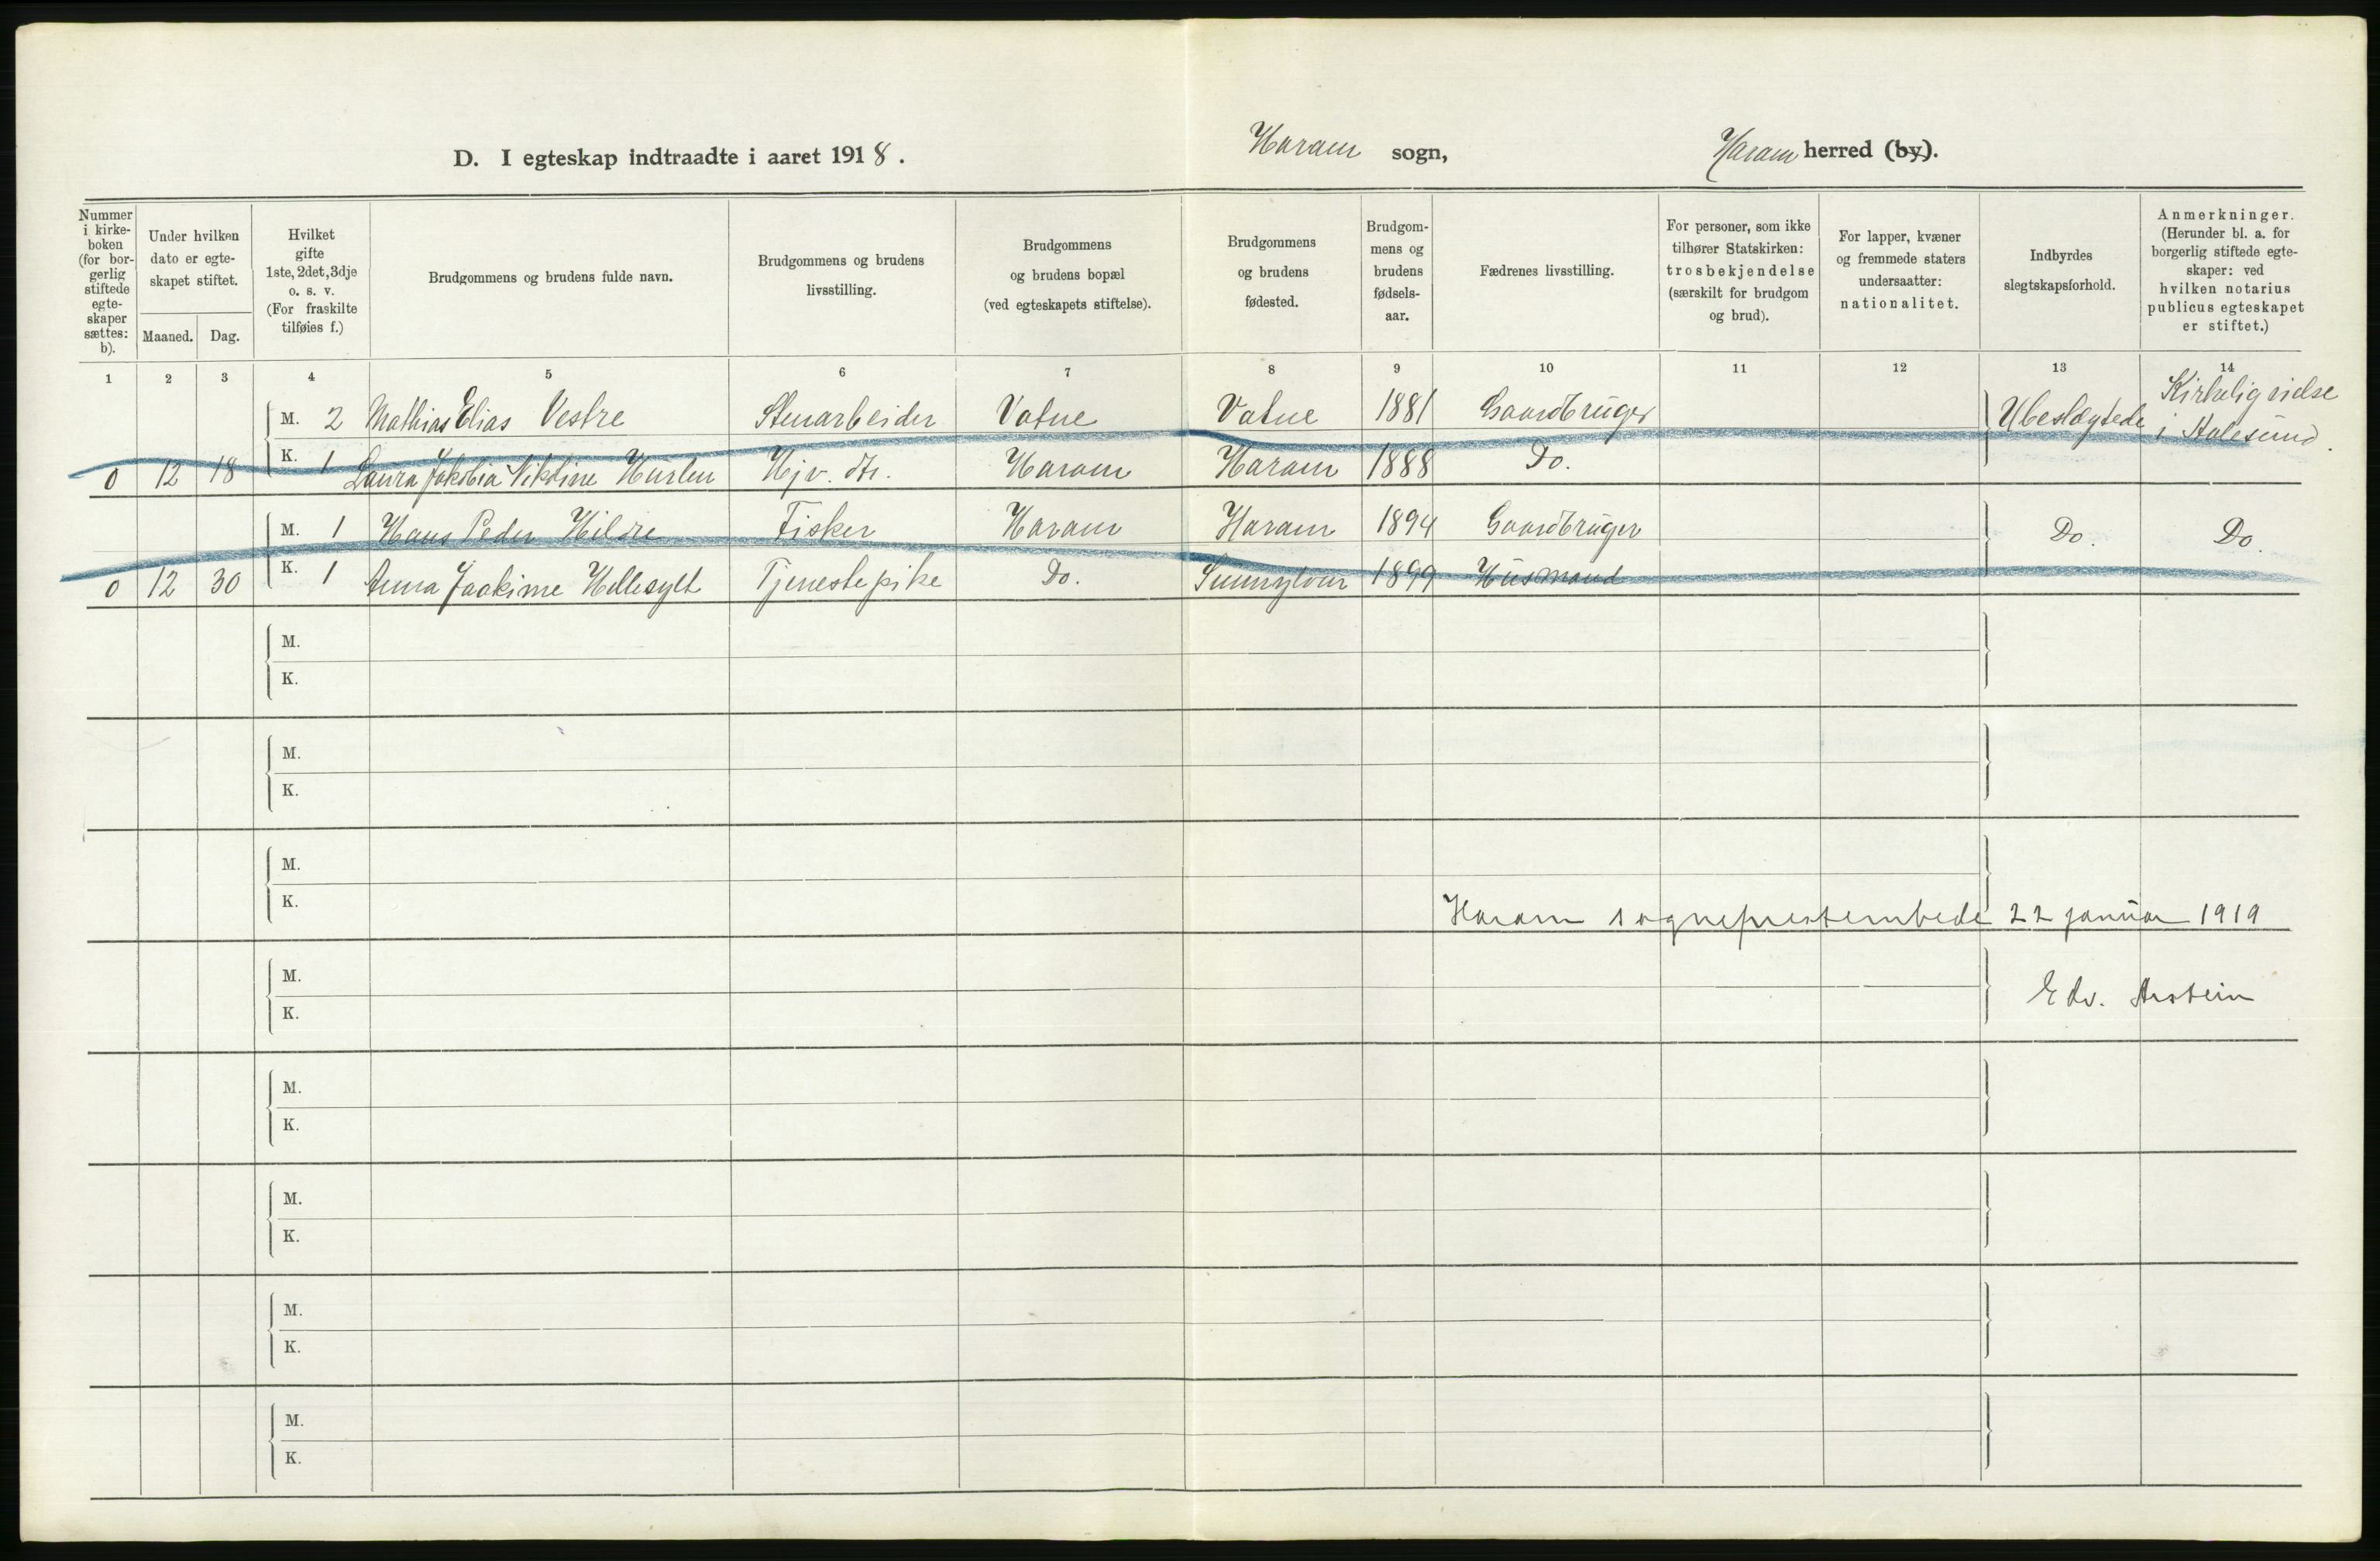 D. I egteskap indtraadte i aaret 1918.
Haram sogn,
Haram herred (by).
Nummer i kirke-boken (for bor-gerlig stiftede egte-skaper sættes: b).
Under hvilken dato er egte-skapet stiftet.
Maaned. Dag.
Hvilket gifte 1ste, 2det, 3dje o. s. v. (For fraskilte tilføies f.)
Brudgommens og brudens fulde navn.
Brudgommens og brudens livsstilling.
Brudgommens og brudens bopæl (ved egteskapets stiftelse).
Brudgommens og brudens fødested.
Brudgom-mens og brudens fødsels-aar.
Fædrenes livsstilling.
For personer, som ikke tilhører Statskirken: trosbekjendelse (særskilt for brudgom og brud).
For lapper, kvæner og fremmede staters undersaatter: nationalitet.
Indbyrdes slegtskapsforhold.
Anmerkninger. (Herunder bl. a. for borgerlig stiftede egte-skaper: ved hvilken notarius publicus egteskapet er stiftet.)
1 2 3 4 5 6 7 8 9 10 11 12 13 14
M. 2 Mathias Elias Vestre Stenarbeider Vatne Vatne 1881 Gaardbruger Ubeslægtede Kirkelig vielse i Aalesund.
0 12 18 K. 1 Laura Jakobia Nikoline Hurlen Hjv. dtr. Haram Haram 1888 Do.
M. 1 Hans Peder Hildre Fisker Haram Haram 1894 Gaardbruger Do. Do.
0 12 30 K. 1 Anna Joakime Hellesylt Tjenestepike Do. Sunnylven 1899 Husmand
M.
K.
M.
K.
M.
K.
Haram sogneprestembede 22 januar 1919
M.
K.
Edv. Arstein
M.
K.
M.
K.
M.
K.
M.
K.